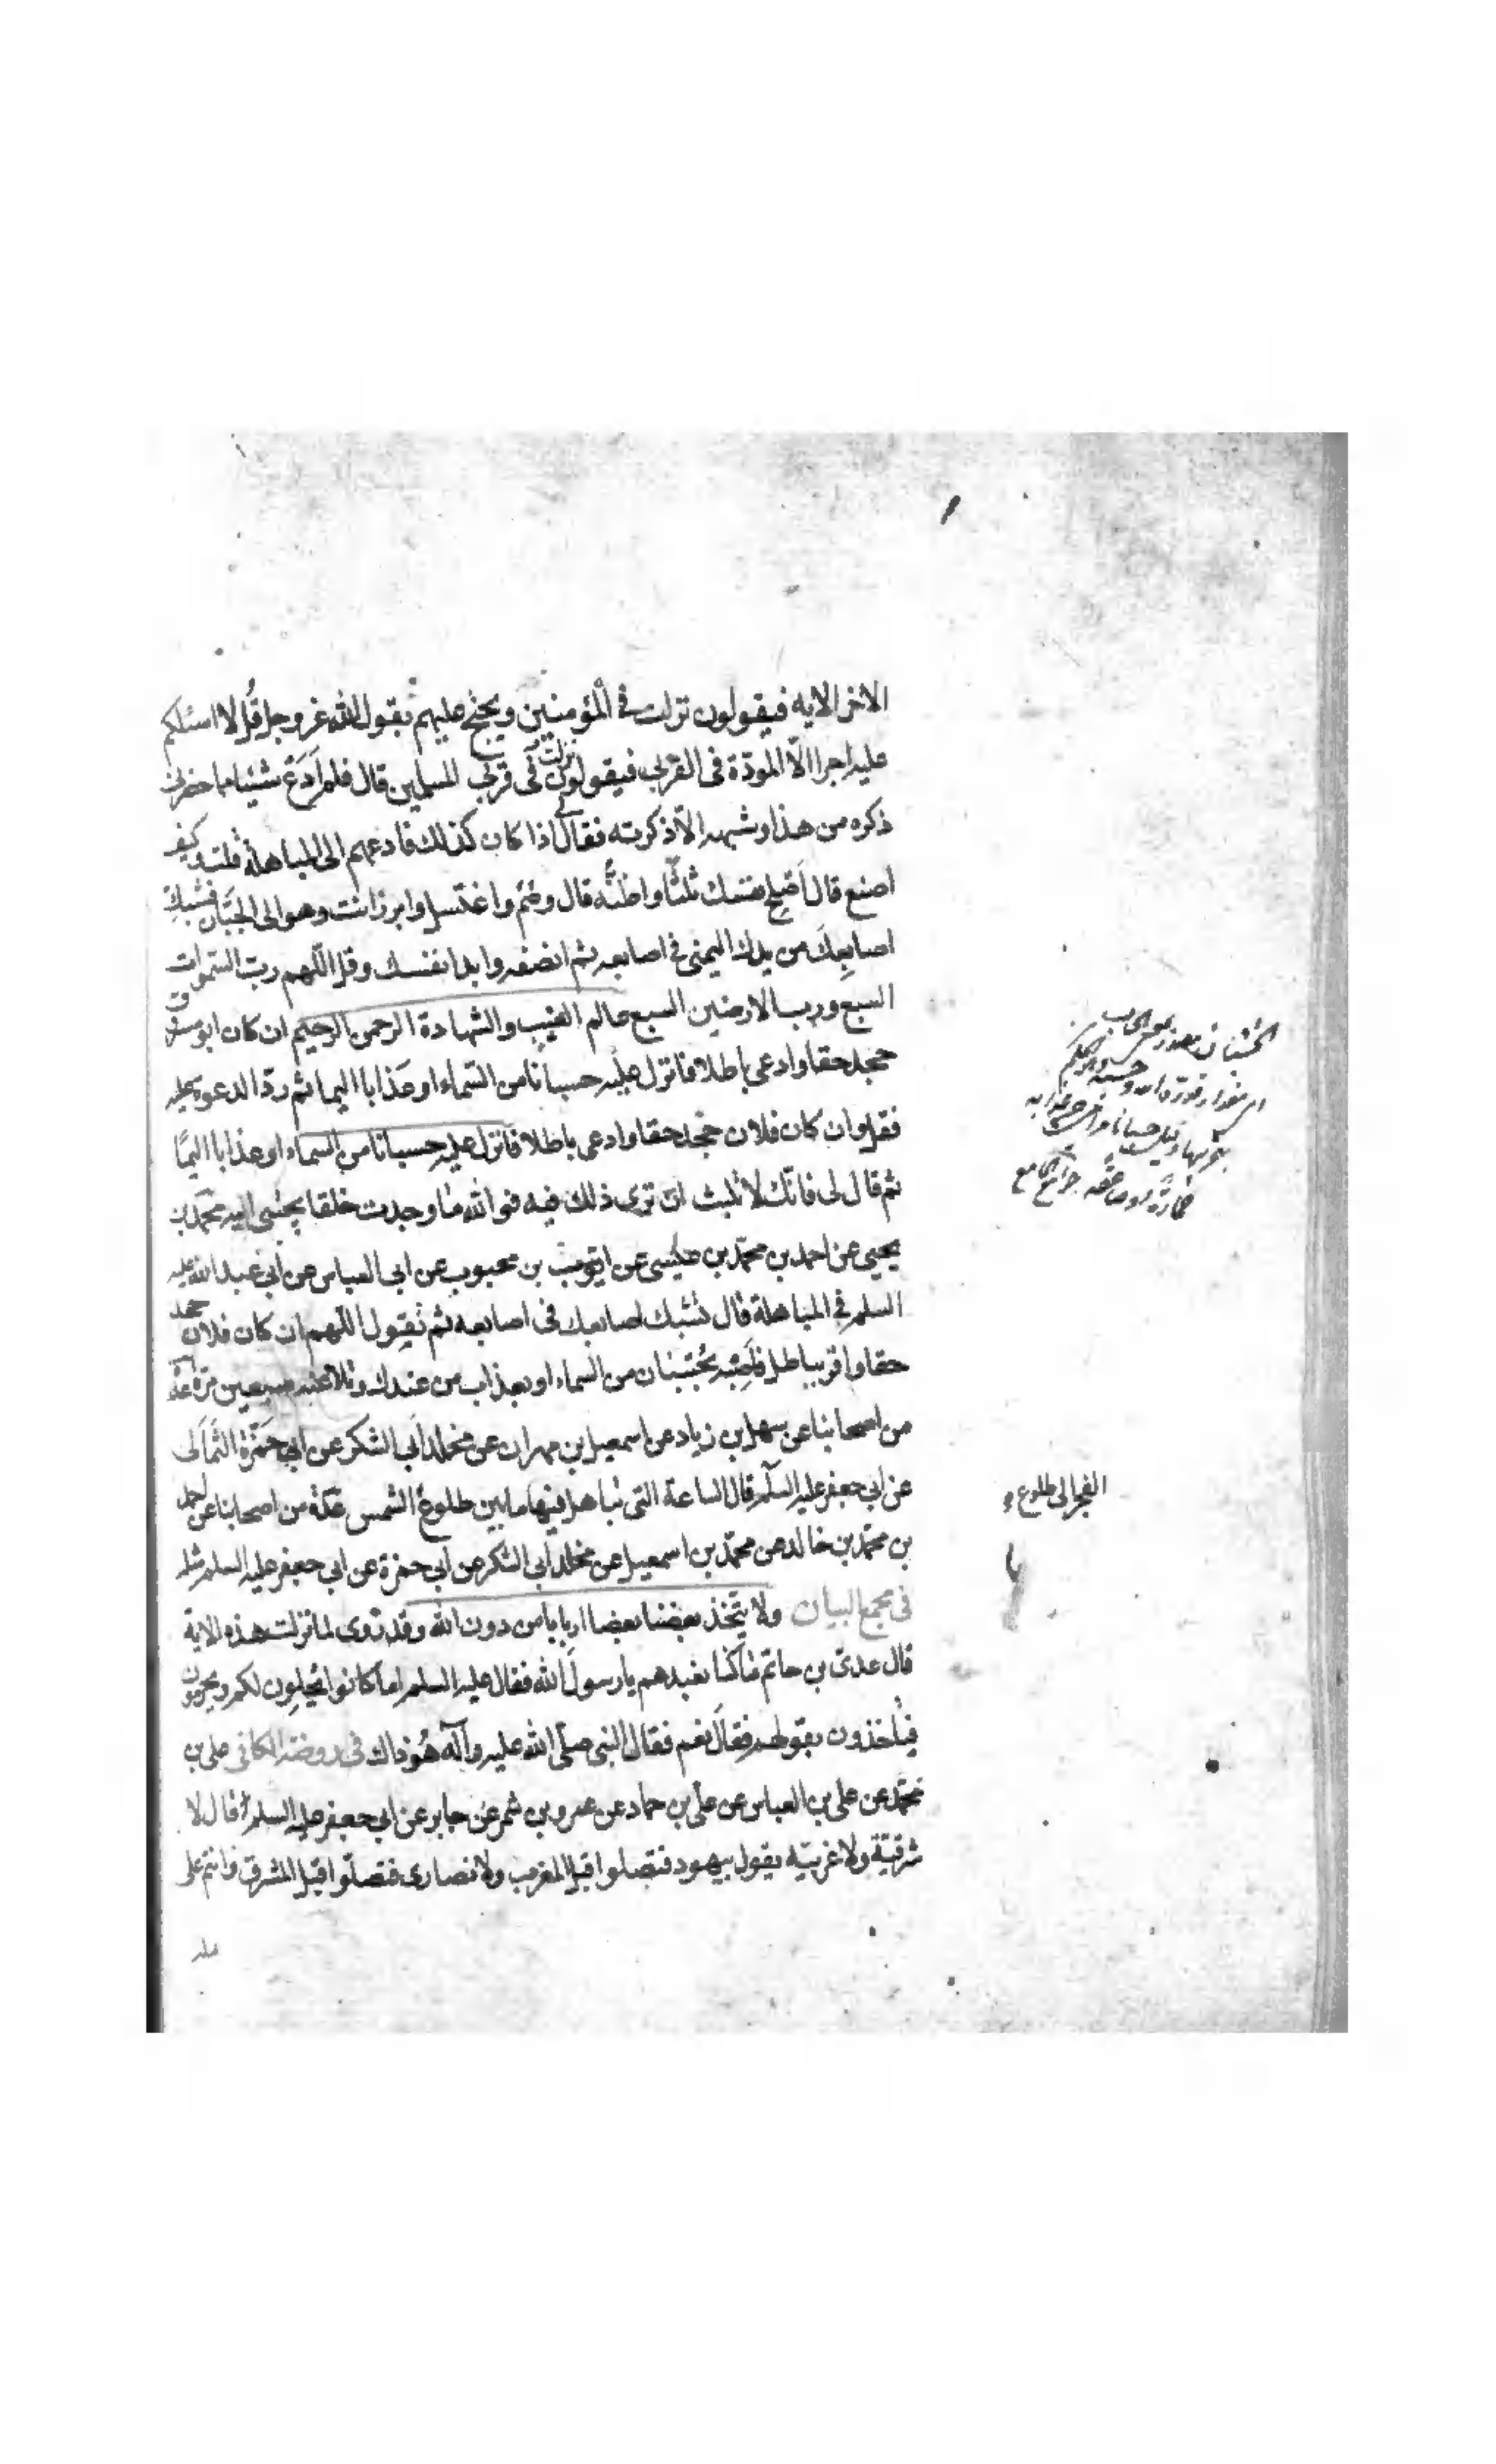 الاخر الايه فيقولون نزلت في المؤمنين ويحتج عليهم بقول الله عز وجل قل لا اسئلكم
عليه اجرا الّا المودّة فى القربى فيقولون نزلت فى قربى المسلمين قال فلم اَدَعْ شيئا مما حضرنى
ذكره من هذا وشبهه الّا ذكرته فقال لى اذا كان كذلك فادعهم الى المباهلة قلت كيف
اصنع قال اَصْلِح نفسك ثلثًا واظنّه قال وصُم واغتسل وابرز انت وهو الى الجبّان فشبك
اصابعك من يدك اليمنى فى اصابعه ثم انصفه وابدا بنفسك وقل اللّهم ربّ السّموات
السبع ورب الارضين السبع عالم الغيب والشهادة الرحمن الرحيم ان كان ابو مسروق
جحد حقا وادعى باطلا فانزل عليْه حسبانا من السّماء او عَذابا اليما ثم ردّ الدعوة عليه
فقل وان كان فلان جحد حقا وادعى باطلا فانزل عليه حسبانا من السماء او عذابا اليمًا
ثم قال لى فانّك لا تلبث ان ترى ذلك فيه فو الله ما وجدت خلقا يجيبنى اليه محمّد بن
يحيى عن احمد بن محمّد بن عيسى عن ايّوب بن محبوب عن ابى العباس عن ابى عبد الله عليه
السلم فى المباهلة قال تشبك اصابعك فى اصابعه ثم تقول اللّهم ان كان فلان جحد
حقا واقر بباطل فاَصِبْه بحُسْبان من السماء او بعذاب من عندك وتلاعنه سبعين مرّة عدّة
من اصحابنا عن سهل بن زياد عن اسمعيل بن مهران عن مخلد اَبى الشكر عن ابى حَمْزَة الثمَالَى
عن ابى جعفر عليه السلم قال الساعة التى تُباهل فيها ما بين طلوع الشمس عدّة من اصحابنا عن احمد
بن محمّد بن خالد عن محمّد بن اسمعيل عن مخلد ابى الشكر عن ابى حمزة عن ابى جعفر عليه السلم مثله
فى مجمع البيان ولا يتّخذ بعضنا بعضا اربابا من دون الله وقد رُوى لما نزلت هذه الاية
قال عدىّ بن حاتم مَا كنّا نعبدهم يا رسولَ الله فقال عليه السلم اما كانوا يُحِلّون لكم ويحرمون
فتاخذون بقولهم فقالَ نعم فقال النبى صلّى الله عليه وآله هُوَ ذاك فى روضة الكافى على بن
محمّد عن على بن العباس عن على بن حماد عن عمرو بن شمر عن جابر عن ابى جعفر عليه السلم قال لا
شرقيّة ولا غربيّه يقول بيهود فتصلوا قِبَل المغرب ولا نصارى فتصلّوا قبل المشرق وانتم على
ملة
الفجر الى طلوع